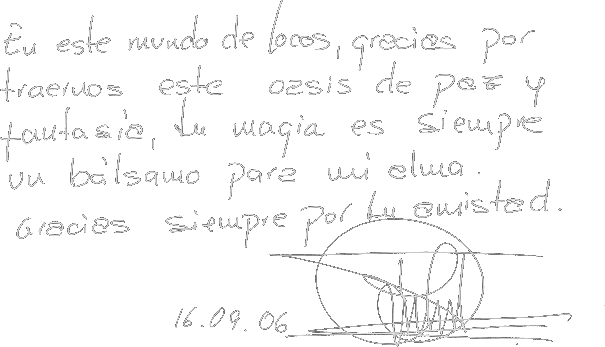 En este mundo de locos, gracias por
traernos este oasis de paz y
fantasía, tu magia es siempre
un bálsamo para mi alma.
Gracias siempre por tu amistad.
16.09.06